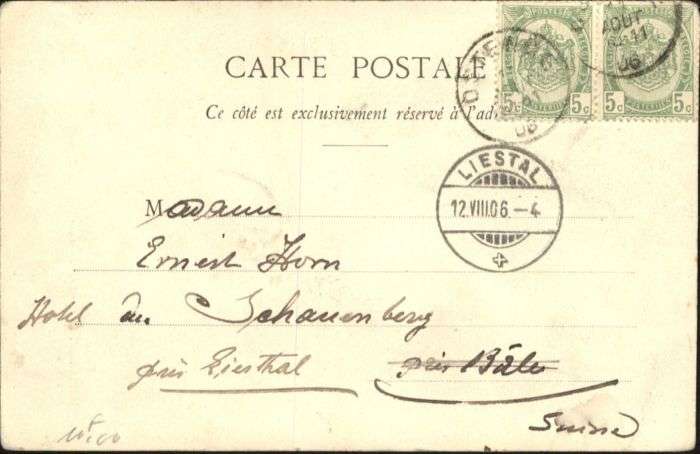 CARTE POSTALE
Ce côté est exclusivement réservé à l'adr
5c 5c 5c 5c
OSTENDE
06
AOUT
06
LIESTAL
12.VIII.06.-4
Madame
Ernest Horn
Hotel du Schauenberg
près Liesthal près Bâle
Suisse